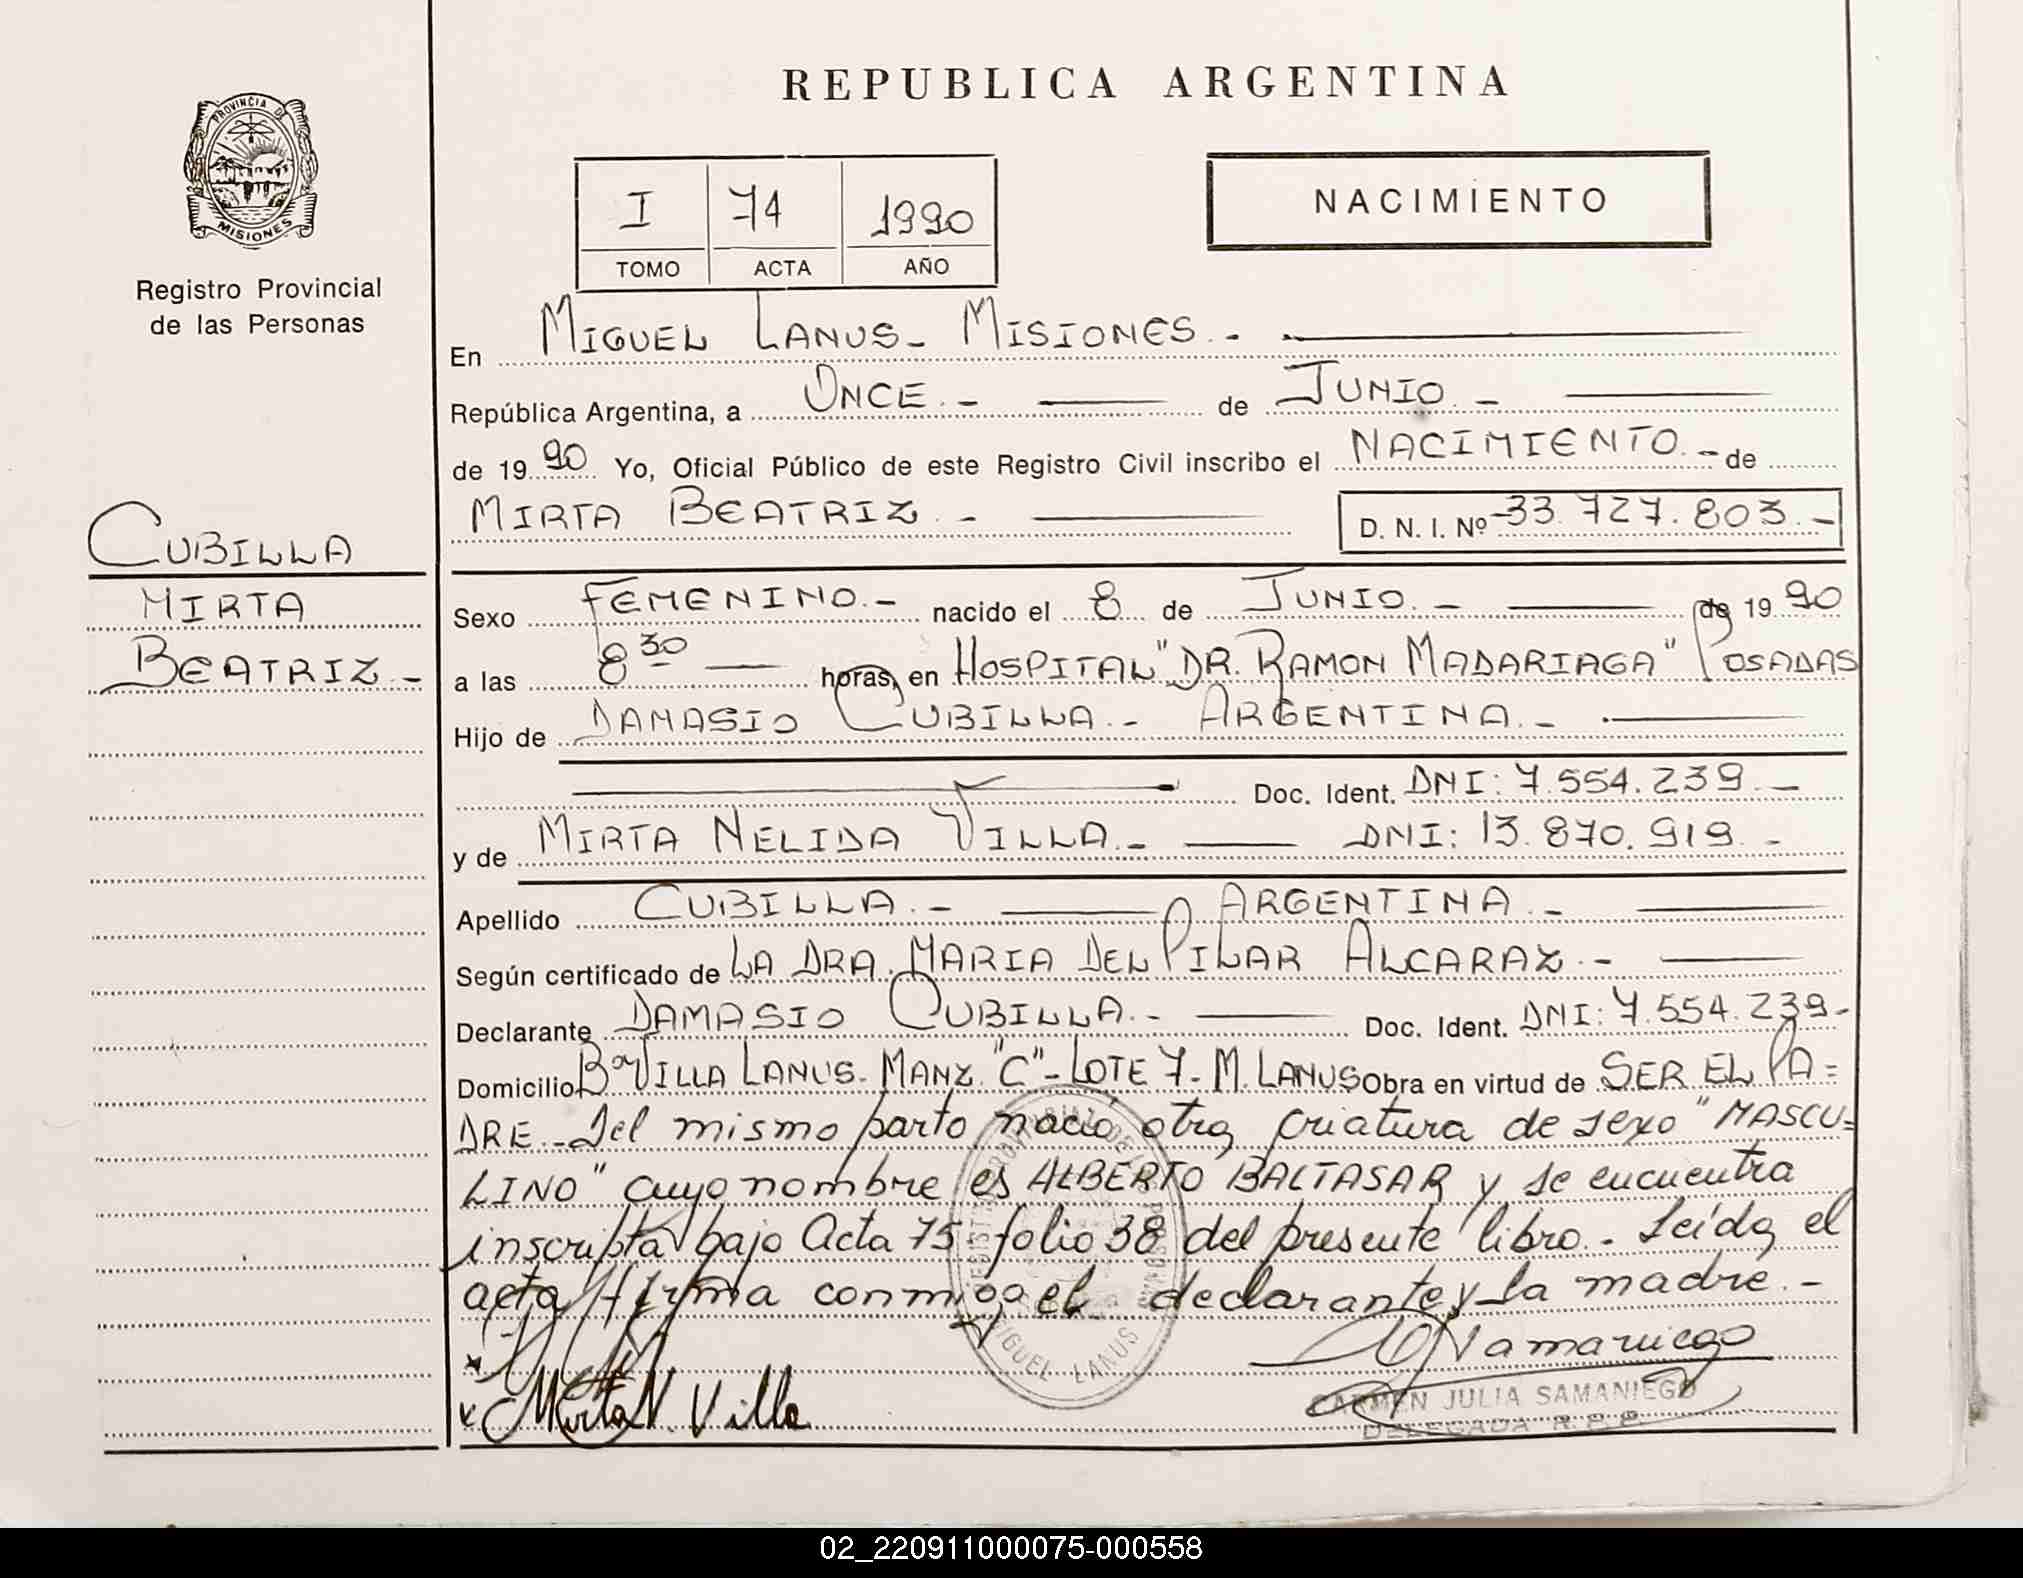 REPUBLICA ARGENTINA
PROVINCIA DE
MISIONES
Registro Provincial
de las Personas
I 74 1990
TOMO ACTA AÑO
NACIMIENTO
En MIGUEL LANUS - MISIONES. -
República Argentina, a ONCE. - de JUNIO. -
de 1990 Yo, Oficial Público de este Registro Civil inscribo el NACIMIENTO. - de
MIRTA BEATRIZ. - D. N. I. Nº 33.727.803. -
CUBILLA
MIRTA
BEATRIZ. -
Sexo FEMENINO. - nacido el 8 de JUNIO. - de 1990
a las 8 30 horas, en HOSPITAL "DR. RAMON MADARIAGA" POSADAS
Hijo de DAMASIO CUBILLA. - ARGENTINA. -
Doc. Ident. DNI: 7.554.239. -
y de MIRTA NELIDA VILLA. - DNI: 13.870.919. -
Apellido CUBILLA. - ARGENTINA. -
Según certificado de LA DRA. MARIA DEL PILAR ALCARAZ. -
Declarante DAMASIO CUBILLA. - Doc. Ident. DNI: 7.554.239 -
Domicilio Bº VILLA LANUS - MANZ. "C" - LOTE 7 - M. LANUS Obra en virtud de SER EL PA=
DRE. - Del mismo parto nació otra criatura de sexo "MASCU=
LINO" cuyo nombre es ALBERTO BALTASAR y se encuentra
inscripta bajo Acta 75 folio 38 del presente libro. - Leída el
acta firma conmigo el declarante y la madre. -
MIGUEL LANUS
Mirta N. Villa
CARMEN JULIA SAMANIEGO
DELEGADA R. P. P.
02_220911000075-000558